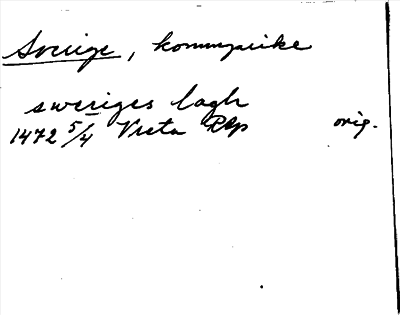 Sverige, konungarike
sweriges lagh
1472 5/4 Vreta RAp orig.